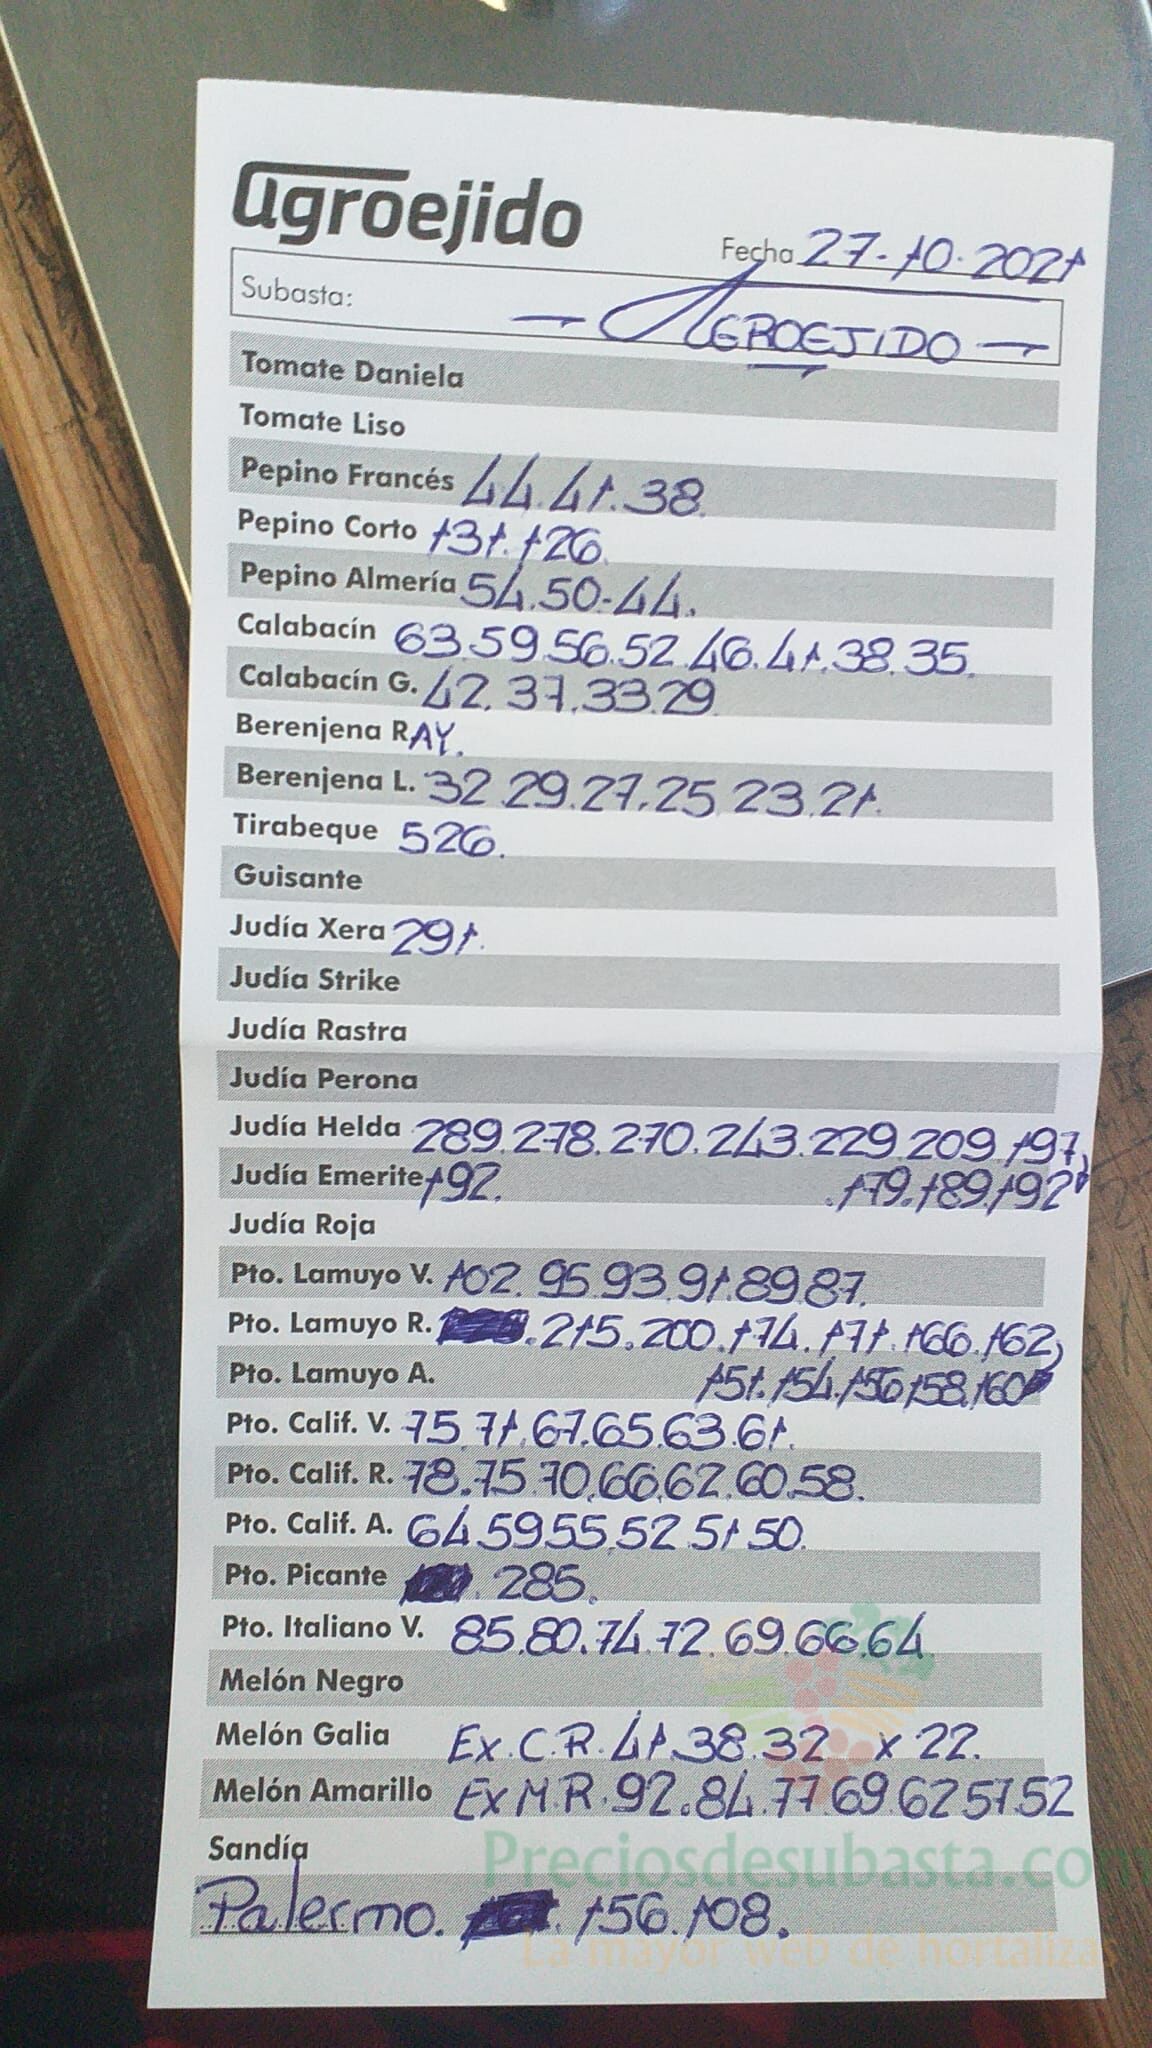 agroejido
Fecha 27-10-2021
Subasta: - AGROEJIDO -
Tomate Daniela
Tomate Liso
Pepino Francés 44.41.38.
Pepino Corto 131.126.
Pepino Almería 54.50-44.
Calabacín 63.59.56.52.46.41.38.35.
Calabacín G. 42.37.33.29.
Berenjena RAY.
Berenjena L. 32.29.27.25.23.21.
Tirabeque 526.
Guisante
Judía Xera 291.
Judía Strike
Judía Rastra
Judía Perona
Judía Helda 289.278.270.243.229.209.197,
Judía Emerite 192. .179.189.192
Judía Roja
Pto. Lamuyo V. 102.95.93.91.89.87.
Pto. Lamuyo R. .215.200.174.171.166.162,
Pto. Lamuyo A. 151.154.156.158.160
Pto. Calif. V. 75.71.67.65.63.61.
Pto. Calif. R. 78.75.70.66.62.60.58.
Pto. Calif. A. 64.59.55.52.51.50.
Pto. Picante . 285.
Pto. Italiano V. 85.80.74.72.69.66.64
Melón Negro
Melón Galia Ex.C.R.41.38.32 x 22.
Melón Amarillo Ex M.R.92.84.77.69.62.57.52
Sandía
Preciosdesubasta.co
Palermo. . 156.108.
La mayor web de hortaliza